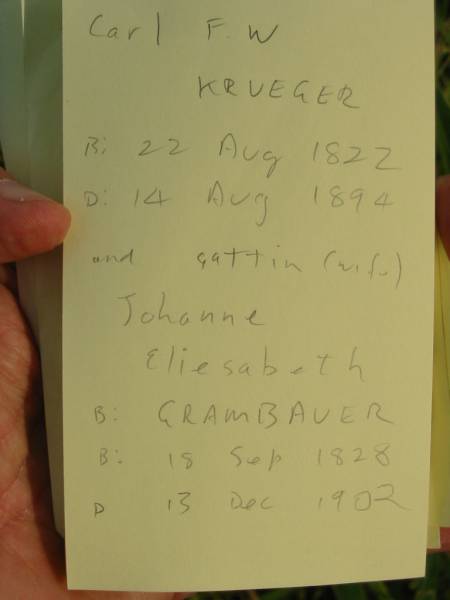 Carl F. W
KRUEGER
B: 22 Aug 1822
D: 14 Aug 1894
and gattin (wife)
Johanne
Eliesabeth
B: GRAMBAUER
B: 18 Sep 1828
D 13 Dec 1902